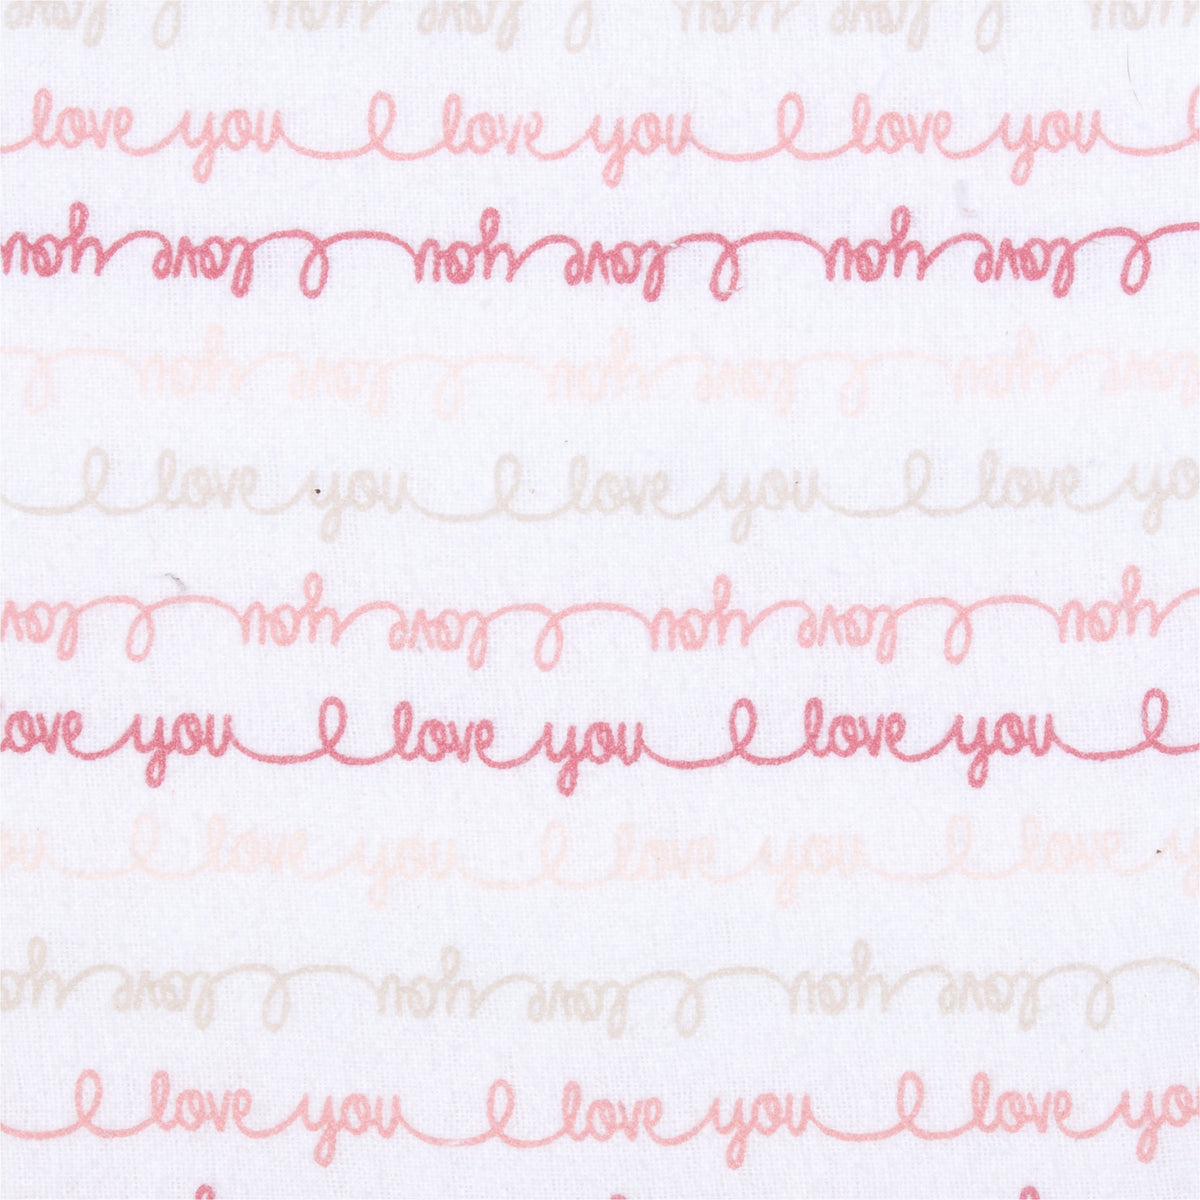 you I love you I love you I love
love you I love you I love you I
I love you I love you I love you
love you I love you I love you I
I love you I love you I love yo
you I love you I love you I love
ove you I love you I love you I
u I love you I love you I love y
I love you I love you I love yo
I love you I love you I love yo